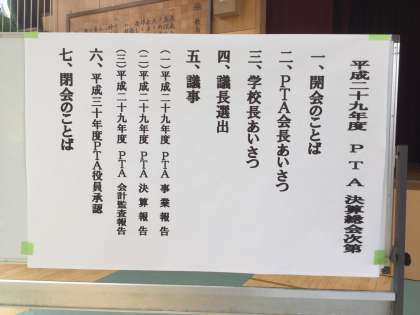 平成二十九年度 ＰＴＡ 決算総会次第
一、開会のことば
二、ＰＴＡ会長あいさつ
三、学校長あいさつ
四、議長選出
五、議事
（一）平成二十九年度 ＰＴＡ 事業報告
（二）平成二十九年度 ＰＴＡ 決算報告
（三）平成二十九年度 ＰＴＡ 会計監査報告
六、平成三十年度ＰＴＡ役員承認
七、閉会のことば